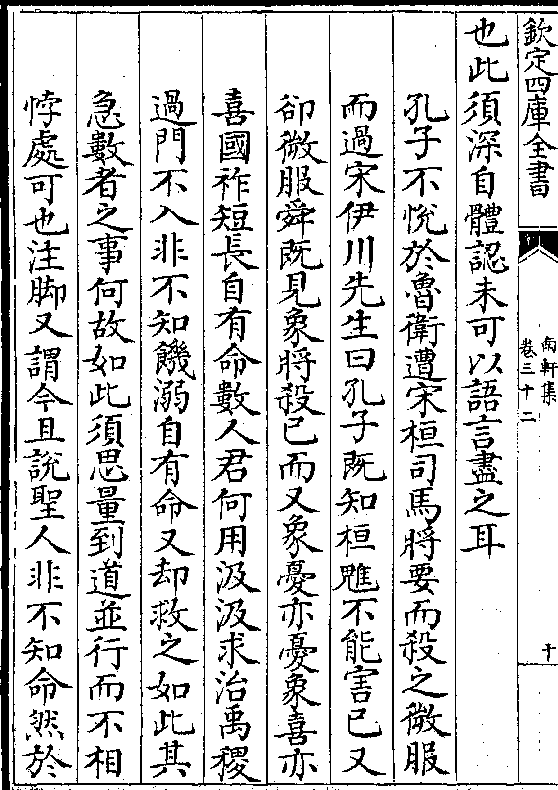 欽定四庫全書
南軒集
卷三十二
十
也此須深自體認未可以語言盡之耳
孔子不悅於魯衛遭宋桓司馬將要而殺之微服
而過宋伊川先生曰孔子既知桓魋不能害己又
卻微服舜既見象將殺已而又象憂亦憂象喜亦
喜國祚短長自有命數人君何用汲汲求治禹稷
過門不入非不知饑溺自有命又却救之如此其
急數者之事何故如此須思量到道並行而不相
悖處可也注脚又謂今且說聖人非不知命然於